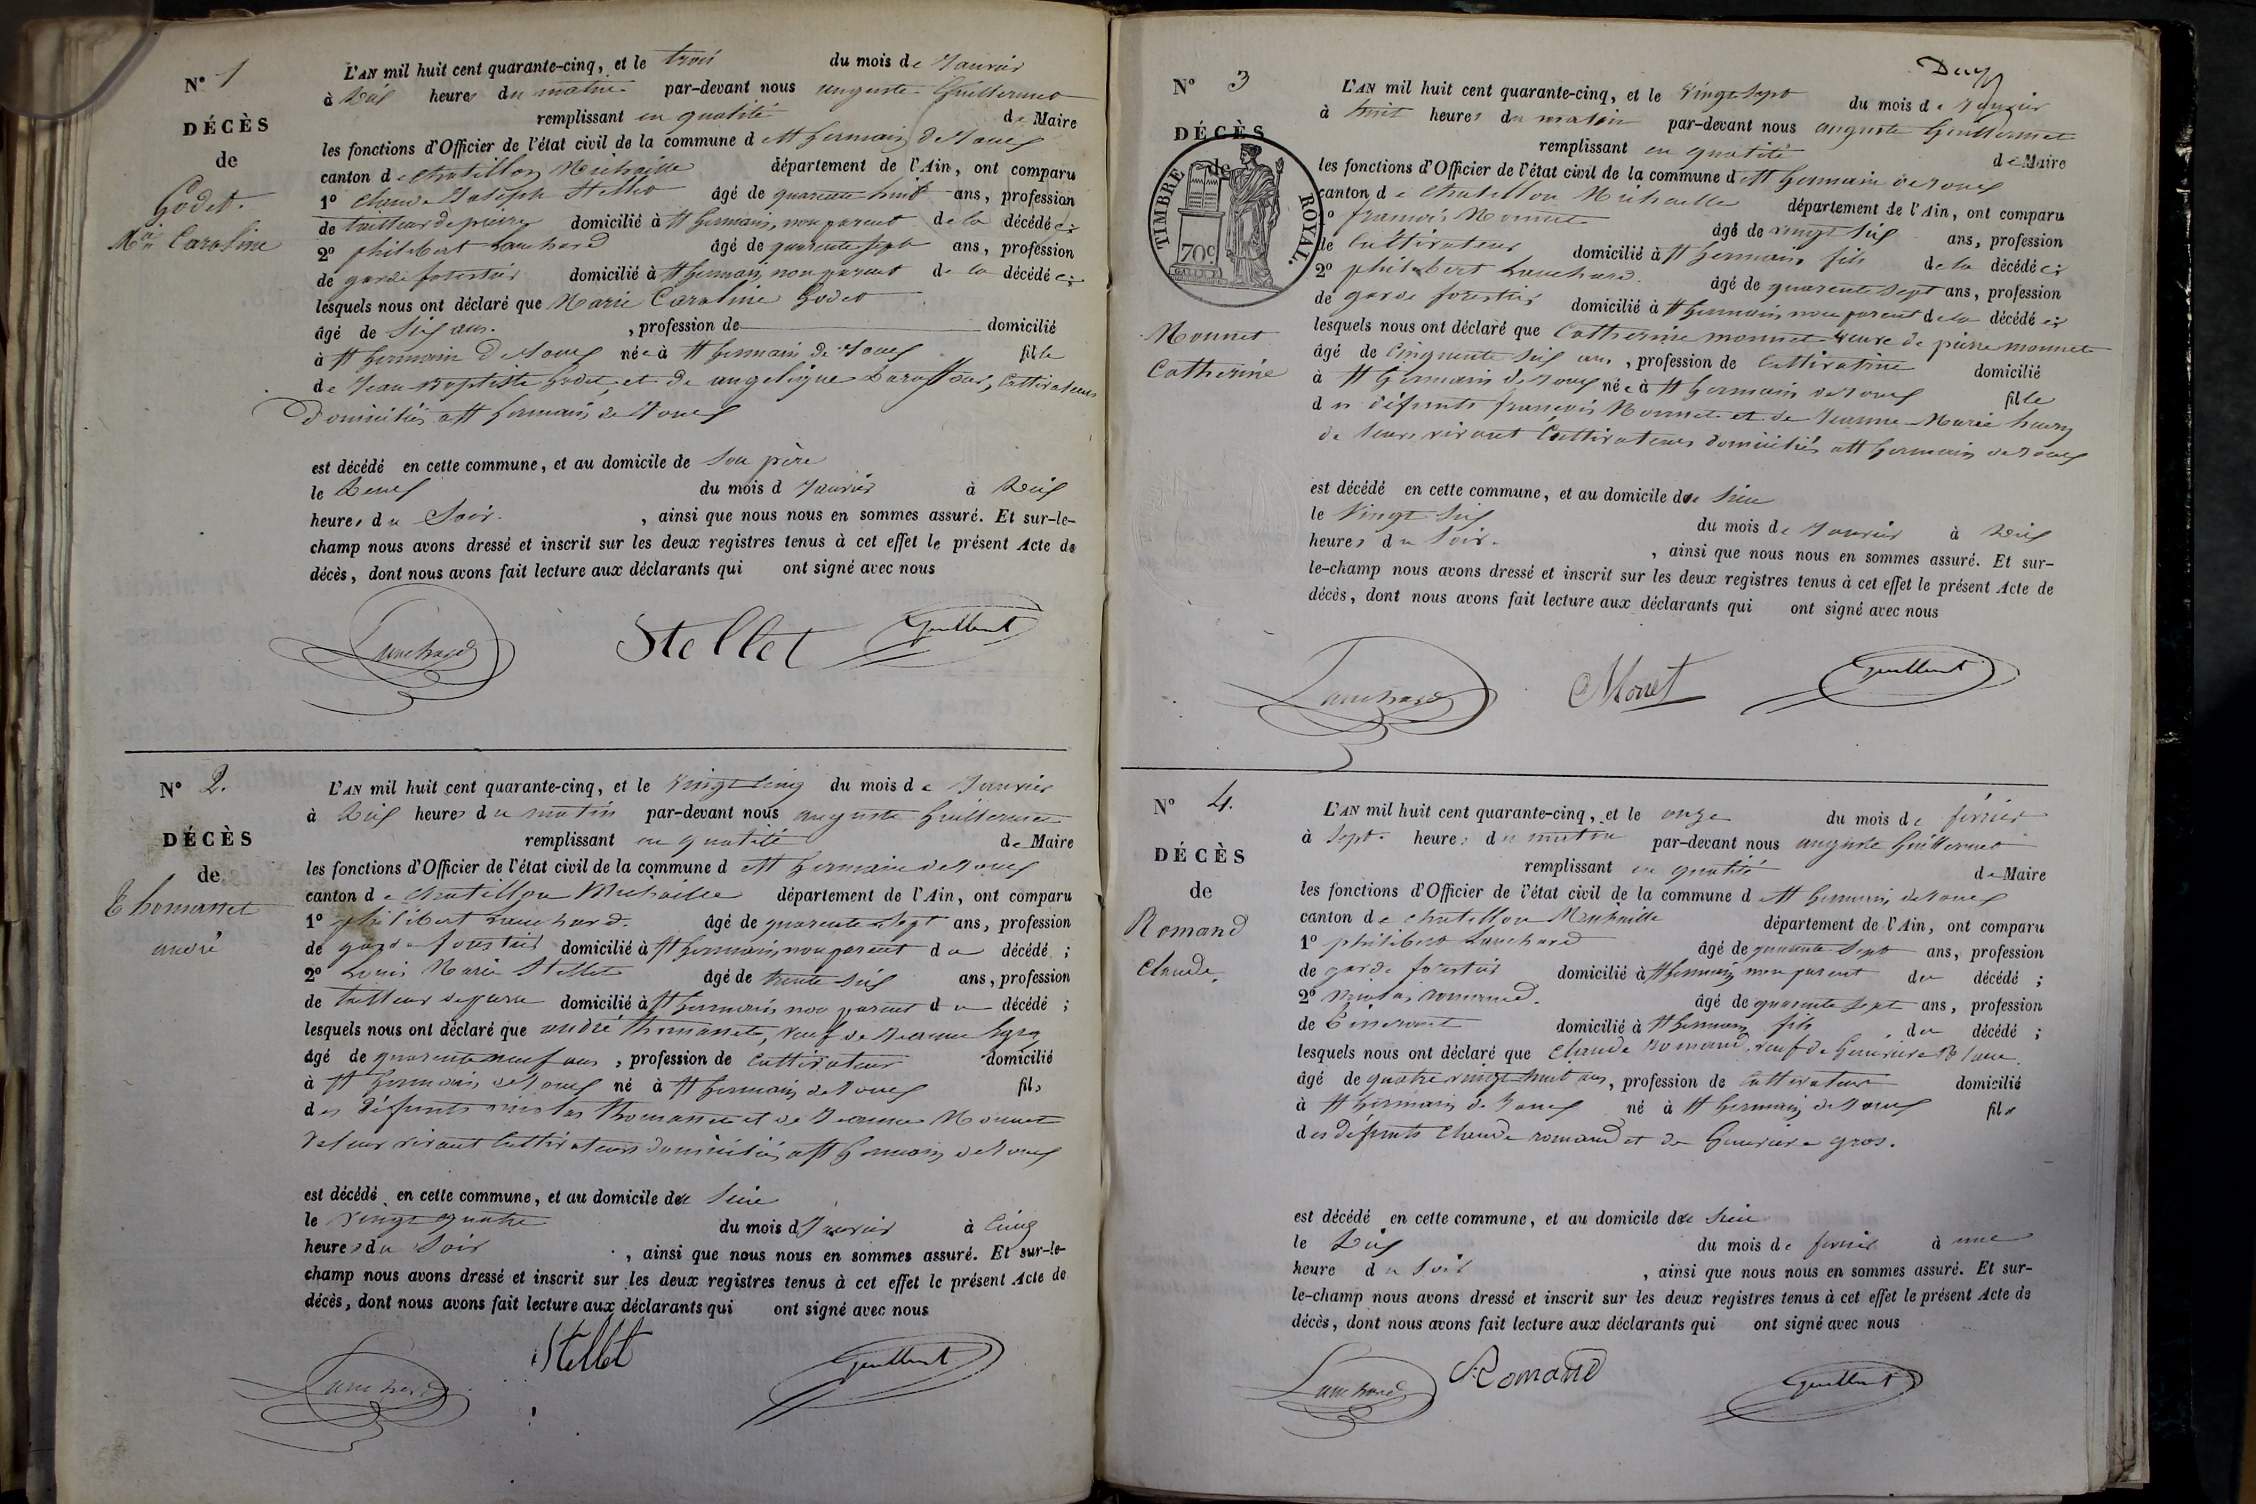 N° 1
DÉCÈS
de
Godet.
Mie Caroline
L'AN mil huit cent quarante-cinq, et le trois du mois de Janvier
à dix heures du matin par-devant nous auguste Guillermet
remplissant en qualité de Maire
les fonctions d'Officier de l'état civil de la commune d St Germain de Joux
canton de Chatillon Michaille département de l'Ain, ont comparu
1° Claude Joseph Stellet âgé de quarante huit ans, profession
de tailleur de pierre domicilié à St Germain, non parent de la décédée;
2° philibert Lanchard âgé de quarante sept ans, profession
de garde forestier domicilié à St Germain, non parent de la décédée;
lesquels nous ont déclaré que Marie Caroline Godet
âgé de Six ans. , profession de domicilié
à St Germain de Joux née à St Germain de Joux fille
de Jean Baptiste Godet, et de angelique, Cultivateurs
Domiciliés a St Germain de Joux
est décédé en cette commune, et au domicile de Son père
le Deux du mois d Janvier à Dix
heures du Soir. , ainsi que nous nous en sommes assuré. Et sur-le-
champ nous avons dressé et inscrit sur les deux registres tenus à cet effet le présent Acte de
décès, dont nous avons fait lecture aux déclarants qui ont signé avec nous
Lanchard Stellet Guillermet
N° 2.
DÉCÈS
de
Thomasset
andré
L'AN mil huit cent quarante-cinq, et le vingt cinq du mois de Janvier
à Dix heures du matin par-devant nous auguste Guillermet
remplissant en qualité de Maire
les fonctions d'Officier de l'état civil de la commune d St Germain de Joux
canton de Chatillon Michaille département de l'Ain, ont comparu
1° philibert Lanchard. âgé de quarante sept ans, profession
de garde forestier domicilié à St Germain, non parent du décédé ;
2° Louis Marie Stellet âgé de trente six ans, profession
de tailleur de pierre domicilié à St Germain non parent du décédé ;
lesquels nous ont déclaré que andré thomasset, veuf de Jeanne
âgé de quarante neuf ans , profession de Cultivateur domicilié
à St Germain de Joux né à St Germain de Joux fils
des défunts nicolas thomasset et de Jeanne Monnet
de leur vivant Cultivateurs domiciliés a St Germain de Joux
est décédé en cette commune, et au domicile de Sien
le vingt quatre du mois d Janvier à Cinq
heures du Soir , ainsi que nous nous en sommes assuré. Et sur-le-
champ nous avons dressé et inscrit sur les deux registres tenus à cet effet le présent Acte de
décès, dont nous avons fait lecture aux déclarants qui ont signé avec nous
Lanchard Stellet Guillermet
N° 3
DÉCÈS
de
TIMBRE ROYAL.
70c
Monnet
Catherine
L'AN mil huit cent quarante-cinq, et le vingt sept du mois de Janvier
à huit heures du matin par-devant nous auguste Guillermet
remplissant en qualité de Maire
les fonctions d'Officier de l'état civil de la commune d St Germain de Joux
canton de Chatillon Michaille département de l'Ain, ont comparu
1° françois Monnet âgé de vingt six ans, profession
de Cultivateur domicilié à St Germain fils de la décédée;
2° philibert Lanchard. âgé de quarante sept ans, profession
de garde forestier domicilié à St Germain, non parent de la décédée
lesquels nous ont déclaré que Catherine monnet veuve de pierre monnet
âgé de Cinquante six ans , profession de Cultivatrice domicilié
à St Germain de Joux née à St Germain de Joux fille
des défunts françois Monnet et de Jeanne Marie
de leur vivant Cultivateurs domiciliés a St Germain de Joux
est décédé en cette commune, et au domicile de Sien
le Vingt Six du mois de Janvier à Dix
heures du Soir. , ainsi que nous nous en sommes assuré. Et sur-
le-champ nous avons dressé et inscrit sur les deux registres tenus à cet effet le présent Acte de
décès, dont nous avons fait lecture aux déclarants qui ont signé avec nous
Lanchard Monet Guillermet
N° 4.
DÉCÈS
de
Romand
Claude.
L'AN mil huit cent quarante-cinq, et le onze du mois de février
à Sept heures du matin par-devant nous auguste Guillermet
remplissant en qualité de Maire
les fonctions d'Officier de l'état civil de la commune d St Germain de Joux
canton de Chatillon Michaille département de l'Ain, ont comparu
1° philibert Lanchard âgé de quarante Sept ans, profession
de garde forestier domicilié à St Germain non parent du décédé ;
2° nicolas romand. âgé de quarante sept ans, profession
de domicilié à St Germain fils du décédé ;
lesquels nous ont déclaré que Claude romand, veuf de Genevieve Blanc
âgé de quatre vingt huit ans, profession de Cultivateur domicilié
à St Germain de Joux né à St Germain de Joux fils
des défunts Claude romand et de Genevieve gros.
est décédé en cette commune, et au domicile de Sien
le Dix du mois de fevrier à une
heure du Soir , ainsi que nous nous en sommes assuré. Et sur-
le-champ nous avons dressé et inscrit sur les deux registres tenus à cet effet le présent Acte de
décès, dont nous avons fait lecture aux déclarants qui ont signé avec nous
Lanchard Romand Guillermet